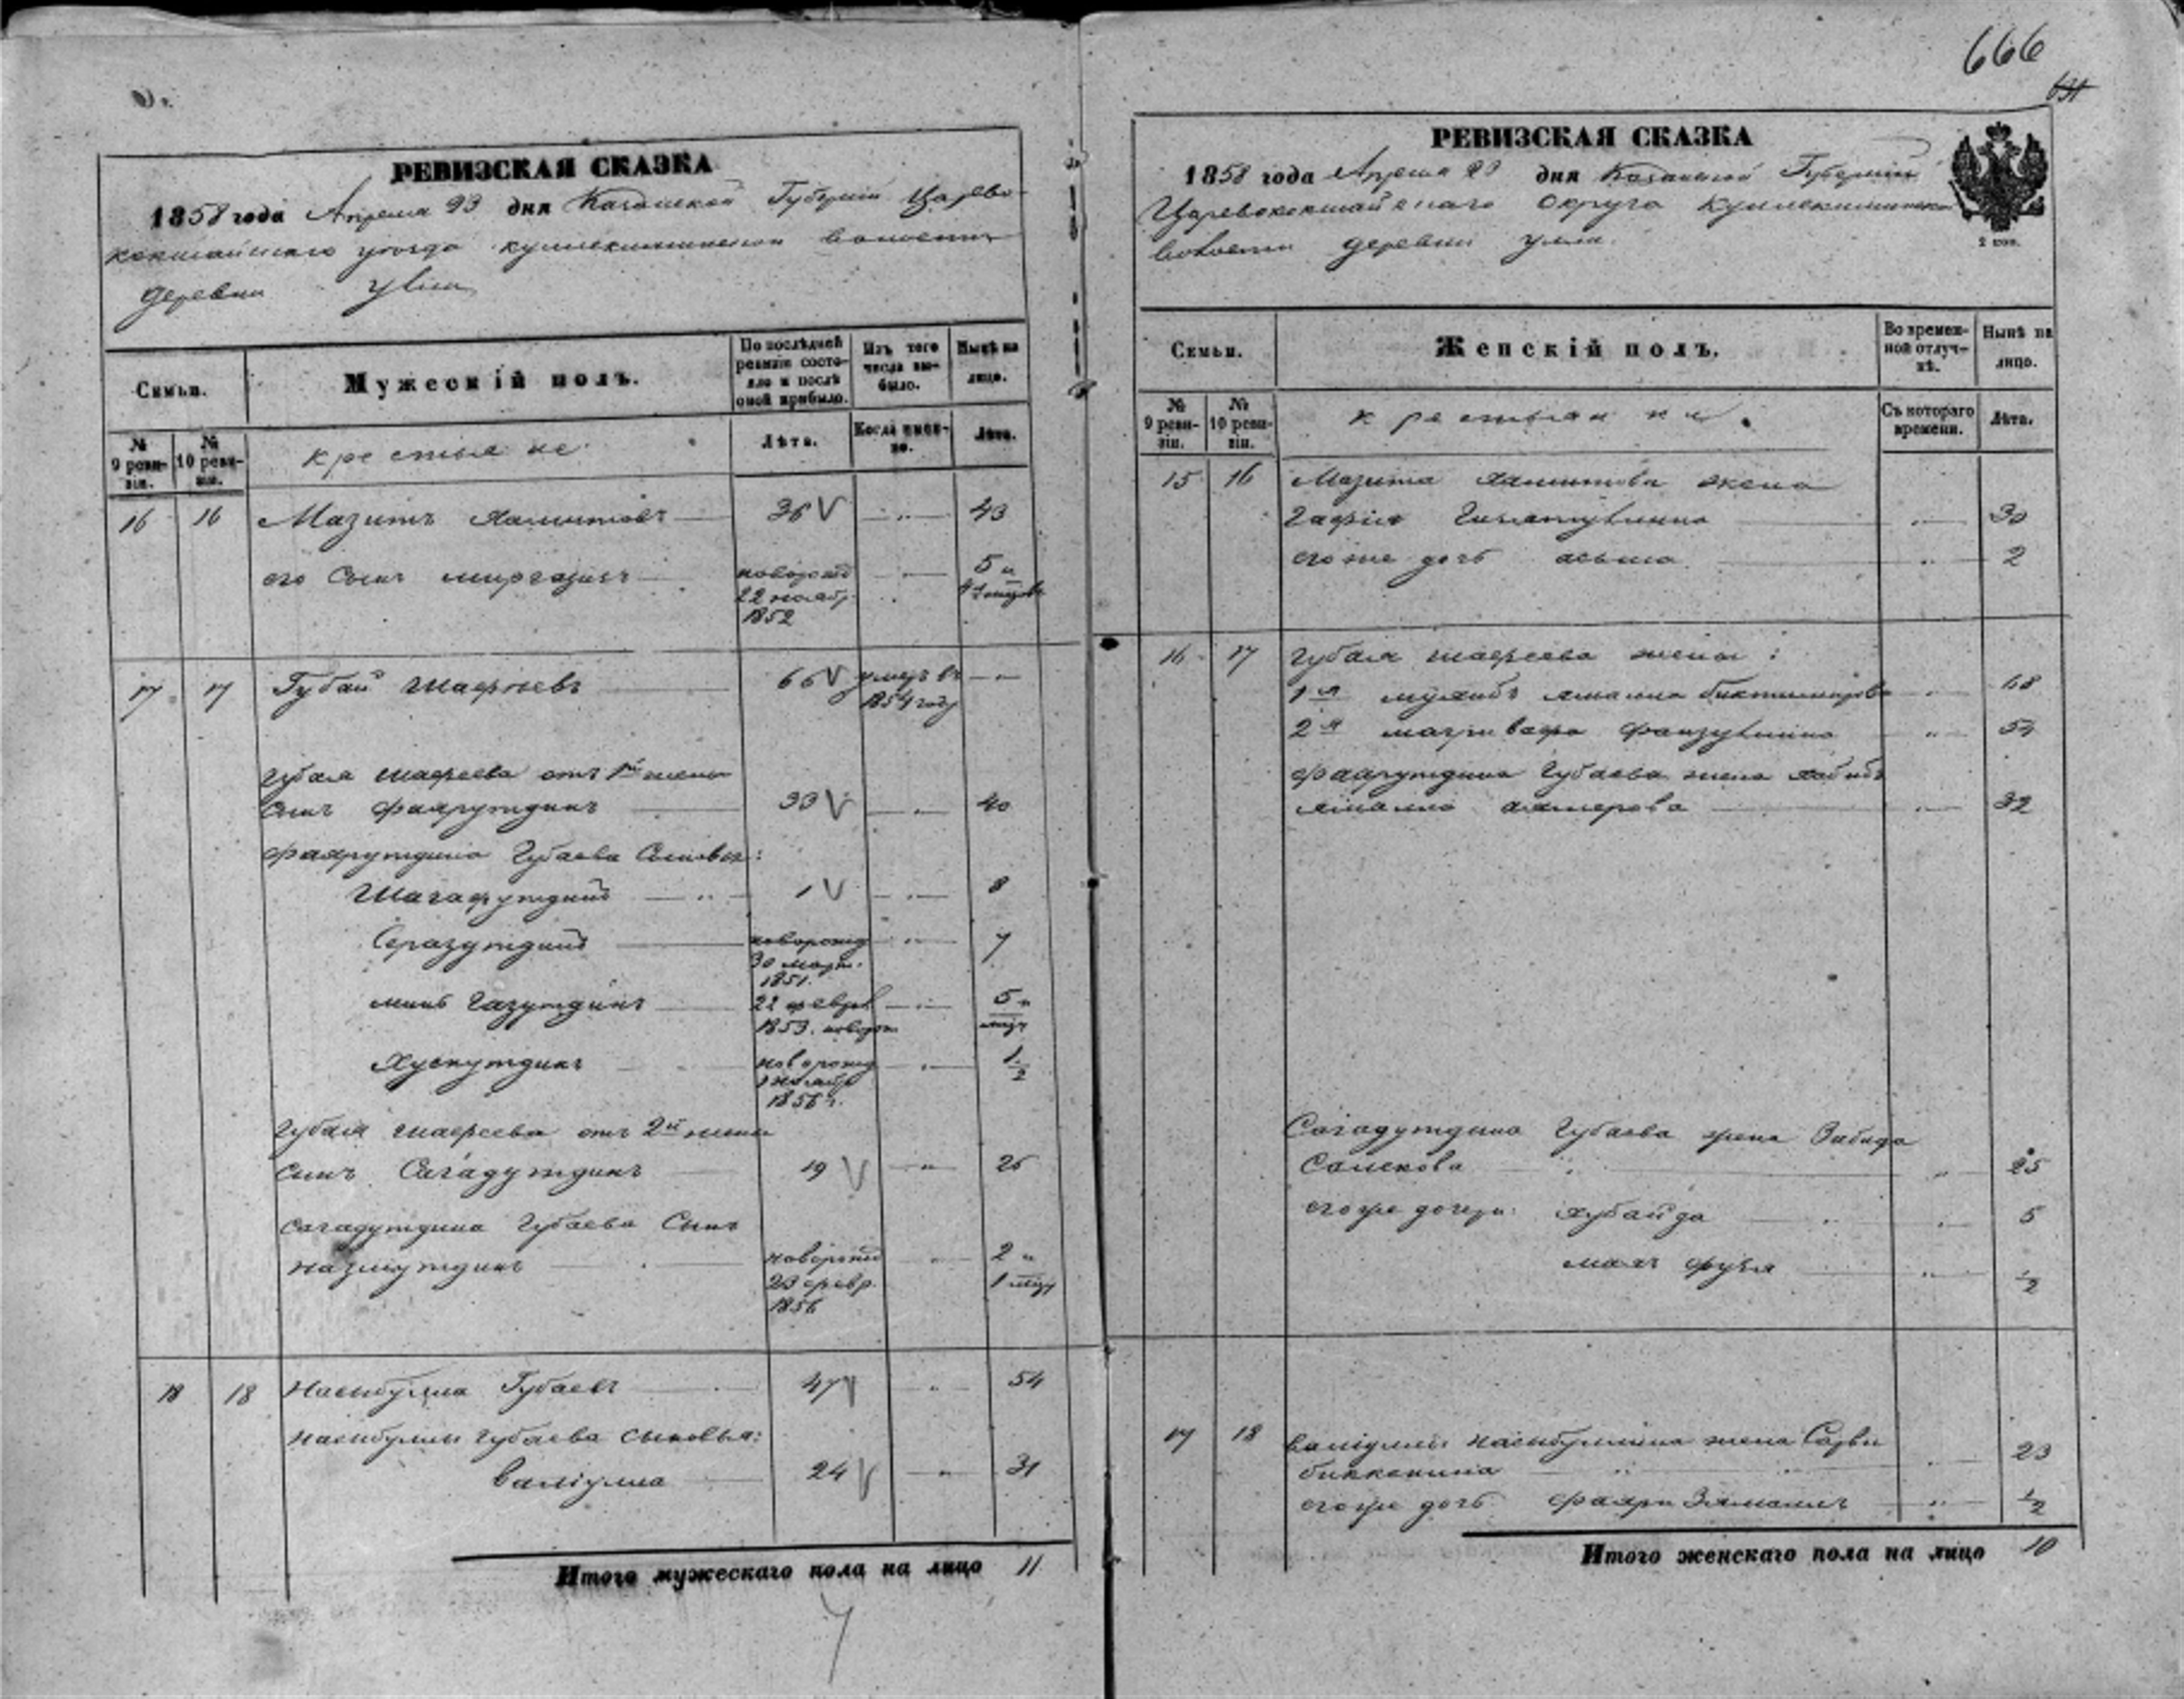 666
631
РЕВИЗСКАЯ СКАЗКА
1858 года Апреля 23 дня Казанской Губернiи Царево-
кокшайскаго уезда кулле-киминской волости
деревни Улiи
Семьи.
Мужескiй полъ.
По послѣдней ревизiи состояло и послѣ оной прибыло.
Изъ того числа выбыло.
Нынѣ на лицо.
№ 9 ревизiи.
№ 10 ревизiи.
крестьяне
Лѣта.
Когда именно.
Лѣта.
16 16 Мазитъ Хамитовъ 36 43
его Сынъ миргазизъ новорожд 22 ноябр. 1852 5 и
17 17 Губай Шафѣевъ 66 умеръ въ 1854 году
Губая Шафеева отъ 1й жены
сынъ Фахрутдинъ 33 40
Фахрутдина Губаева Сыновья:
Шагафутдинъ 1 8
Серазутдинъ новорожд 30 март. 1851. 7
минъ Газутдинъ 22 феврал 1853. новорож 5 и
Хуснутдинъ новорожд ноября 1856 г. 1/2
Губая Шафеева отъ 2й жены
сынъ Сагадутдинъ 19 26
Сагадутдина Губаева Сынъ
назмутдинъ новорожд 23 февр. 1856 2 и 1 мцъ
18 18 Насибулла Губаевъ 47 54
Насибуллы Губаева сыновья:
Валiулла 24 31
Итого мужескаго пола на лицо 11
РЕВИЗСКАЯ СКАЗКА
1858 года Апреля 23 дня Казанской Губернiи
Царевококшайскаго округа Кулле-киминской
волости деревни Улiи.
2 коп.
Семьи.
Женскiй полъ.
Во временной отлучкѣ.
Нынѣ на лицо.
№ 9 ревизiи.
№ 10 ревизiи.
крестьянки.
Съ котораго времени.
Лѣта.
15 16 Мазита Хамитова жена
Гафiя 30
его же дочь 2
16 17 Губая Шафеева жены:
1я 68
2я 54
Фахрутдина Губаева жена Хабиб
32
Сагадутдина Губаева жена Забида
Салекова 25
его же дочери: Хубайда 5
1/2
17 18 Валiуллы Насибуллина жена Сарви
биккенина 23
его же дочь Фахри Зяманилъ 1/2
Итого женскаго пола на лицо 10